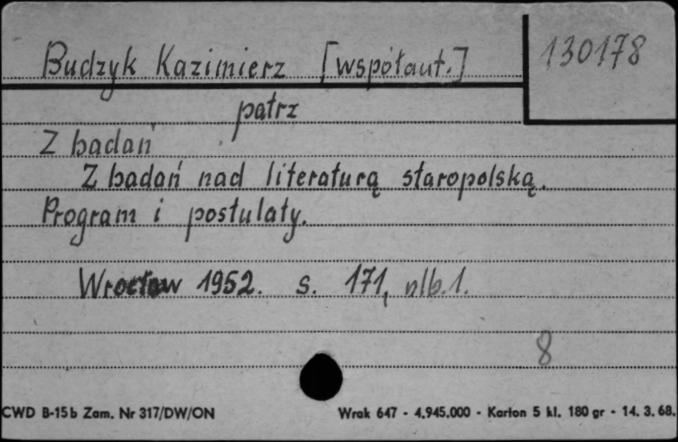 Budzyk Kazimierz [współaut.]
130178
patrz
Z badań
Z badań nad literaturą staropolską.
Program i postulaty.
Wrocław 1952. s. 171, nlb.1.
8
CWD B-15b Zam. Nr 317/DW/ON
Wrak 647 - 4.945.000 - Karton 5 kl. 180 gr - 14. 3. 68.